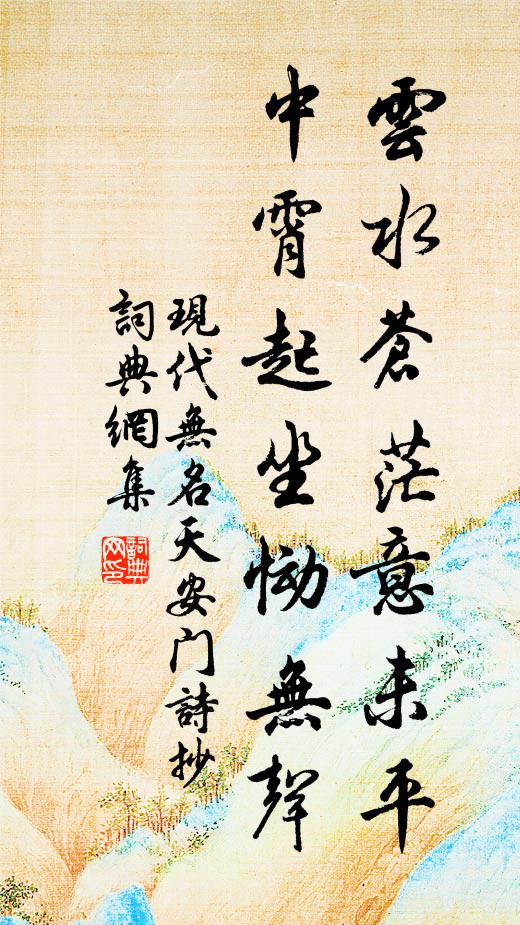 雲水蒼茫意未平
中霄起坐慟無聲
現代無名天安门詩抄
詞典網集
詞典
网印